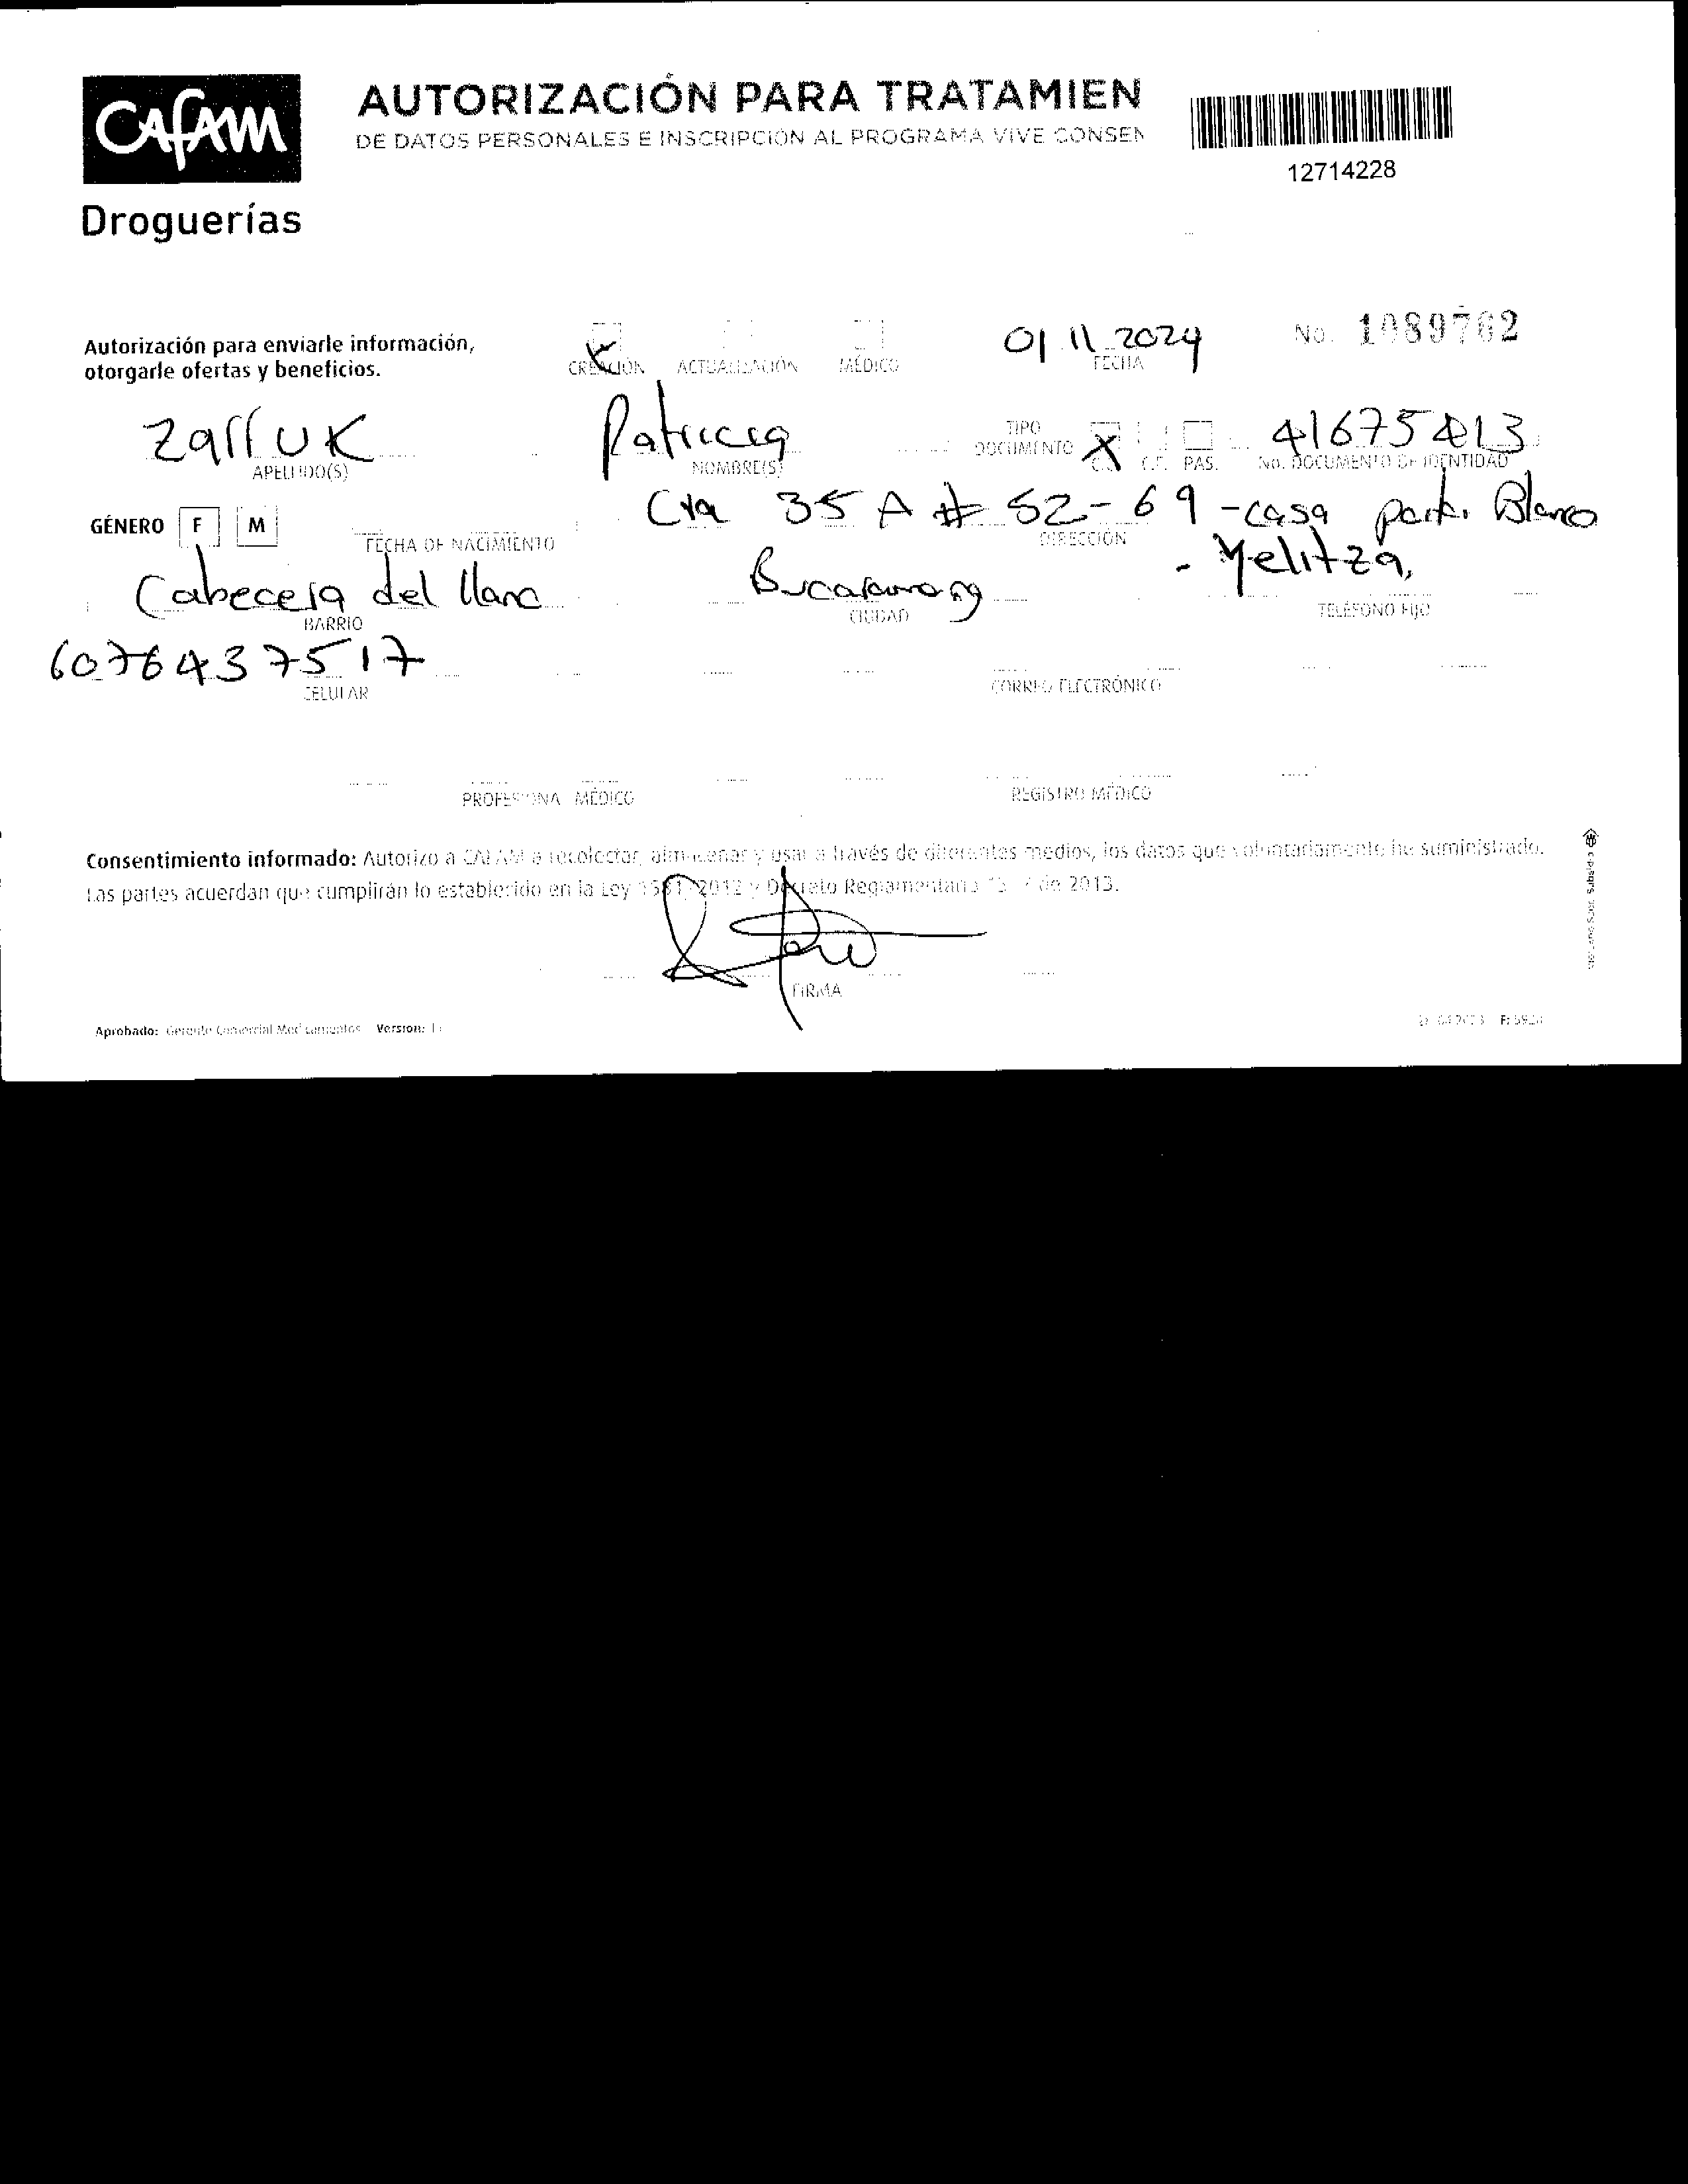 CAFAM
Droguerías
AUTORIZACIÓN PARA TRATAMIEN
DE DATOS PERSONALES E INSCRIPCIÓN AL PROGRAMA VIVE CONSEN
12714228
Autorización para enviarle información,
otorgarle ofertas y beneficios.
X
CREACIÓN ACTUALIZACIÓN MÉDICO
01 11 2024
FECHA
No. 1089762
Zarruk
APELLIDO(S)
Patricia
NOMBRE(S)
TIPO
DOCUMENTO X C.C. C.E. PAS.
41675413
No. DOCUMENTO DE IDENTIDAD
GÉNERO F M
FECHA DE NACIMIENTO
Cra 35 A # 52-69 - casa Blanco
DIRECCIÓN
- Yelitza,
Cabecera del llano
BARRIO
Bucaramanga
CIUDAD
TELÉFONO FIJO
6076437517
CELULAR
CORREO ELECTRÓNICO
PROFESIONAL MÉDICO
REGISTRO MÉDICO
Consentimiento informado: Autorizo a CAFAM a recolectar, almacenar y usar a través de diferentes medios, los datos que voluntariamente he suministrado.
Las partes acuerdan que cumplirán lo establecido en la Ley 1581/2012 y Decreto Reglamentario de 2013.
FIRMA
Aprobado: Gerente Comercial Medicamentos Version: